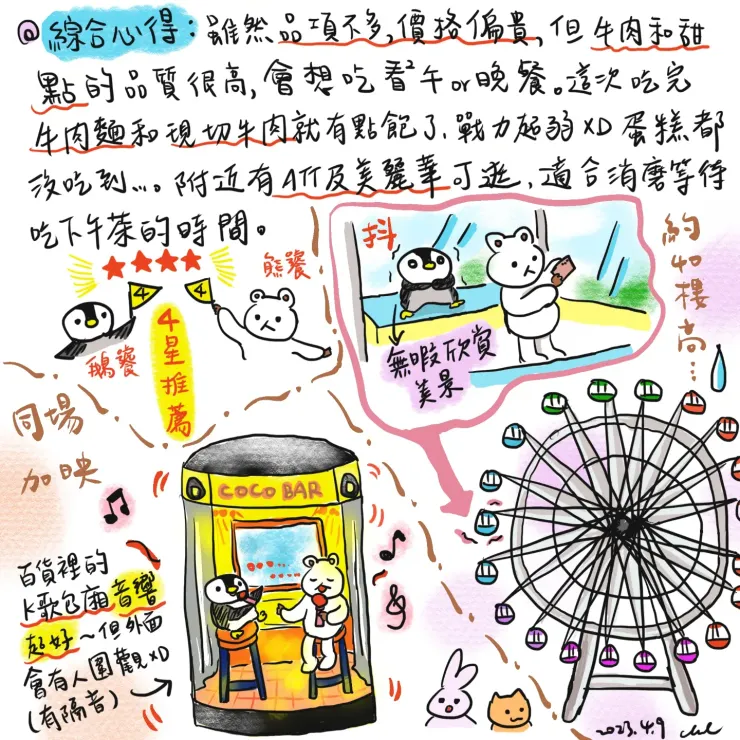 @綜合心得：雖然品項不多，價格偏貴，但牛肉和甜
點的品質很高，會想吃看²午or晚餐。這次吃完
牛肉麵和現切牛肉就有點飽了，戰力超弱XD 蛋糕都
沒吃到…。附近有ATT及美麗華可逛，適合消磨等待
吃下午茶的時間。
★★★★
4
4
熊饕
鵝饕
4星推薦
抖
無暇欣賞
美景
約40樓高…
同場
加映
COCO BAR
百貨裡的
K歌包廂音響
超好～但外面
會有人圍觀XD
(有隔音)
2023.4.9